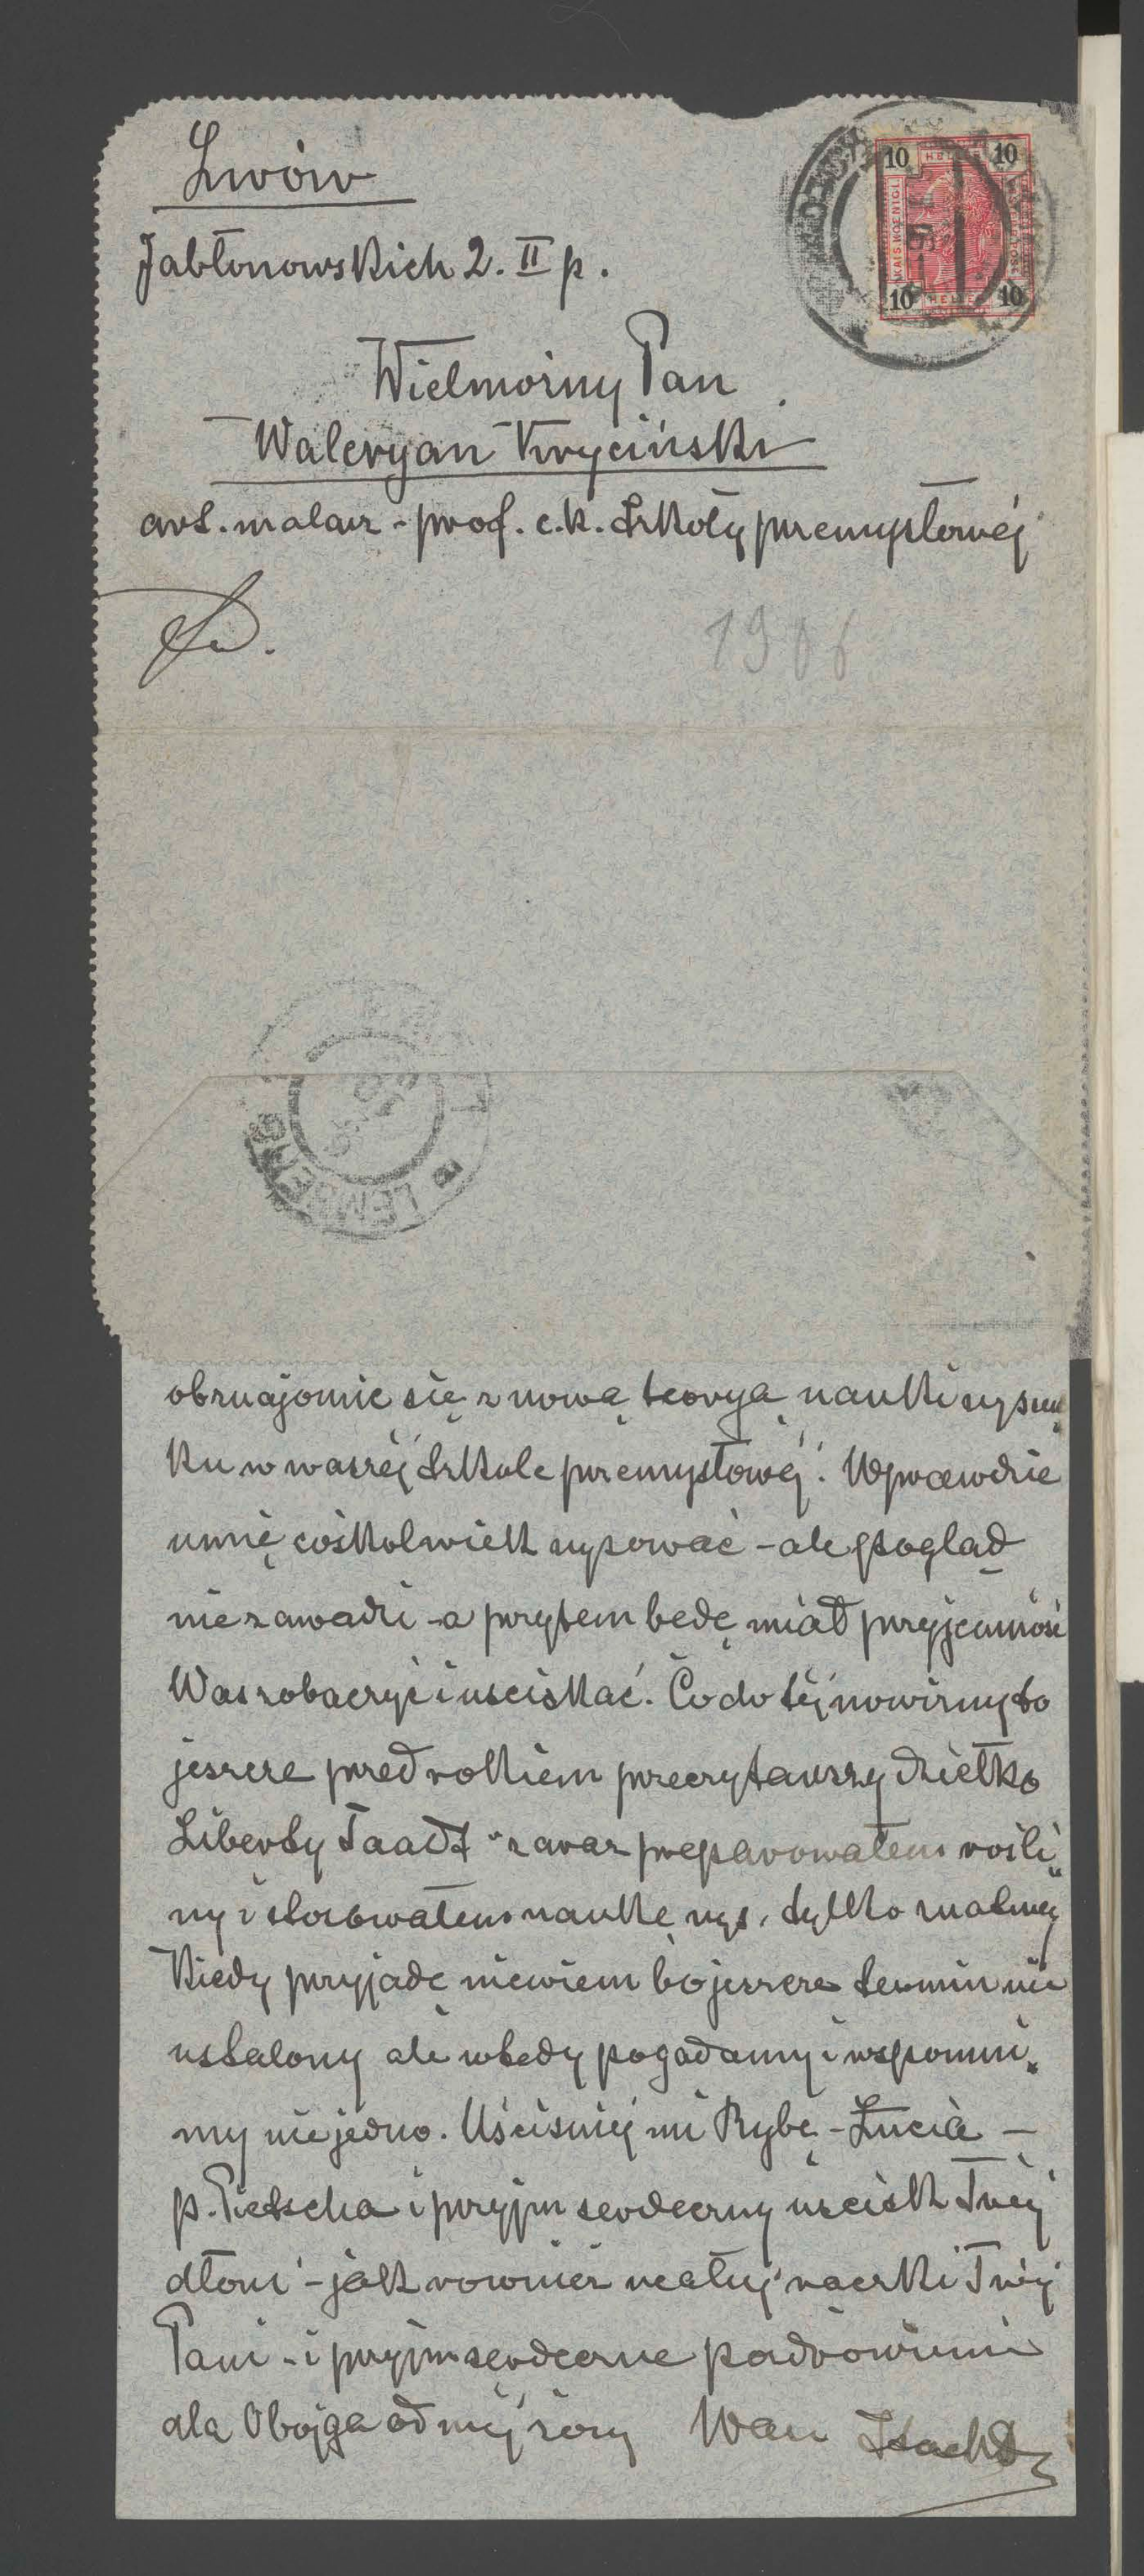 Lwów
Jabłonowskich 2. II p.
Wielmożny Pan
Waleryan Kryciński
art. malarz - prof. c.k. Szkoły przemysłowéj
1906
10 HELLER 10
KAIS. KOENIGL.
10 HELLER 10
LEMBERG
obznajomić się z nową teoryą nauki rysun
ku w waszéj Szkole przemysłowéj. Wprawdzie
umię cośkolwiek rysować - ale pogląd
nie zawadzi - a przytem będę miał przyjemność
Was zobaczyć i uściskać. Co do téj nowizny to
jeszcze przed rokiem przeczytawszy dziełko
Liberty Taadt zaraz preparowałem rośli„
ny i stosowałem naukę rys. tylko z natury
Kiedy przyjadę niewiem bo jeszcze termin nie
ustalony ale wtedy pogadamy i wspomni„
my niejedno. Uściśnij mi Rybę - Łucia -
p. Pietscha i przyjm serdeczny uścisk Twéj
dłoni - jak rownież ucałuj rączki Twéj
Pani - i przyjm serdeczne pozdrowienie
dla Obojga od méj żony Wasz